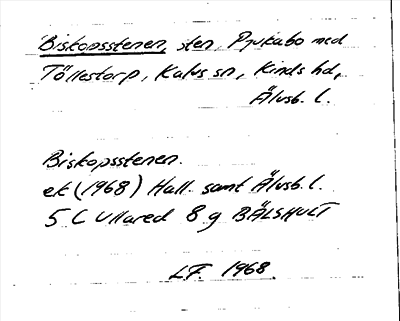 Biskopsstenen, sten, Pjukabo med
Töllestorp, Kalvs sn, Kinds hd,
Älvsb. l.
Biskopsstenen.
ek (1968) Hall. samt Älvsb. l.
5 C Ullared 8 g BÄLSHULT
LF. 1968.